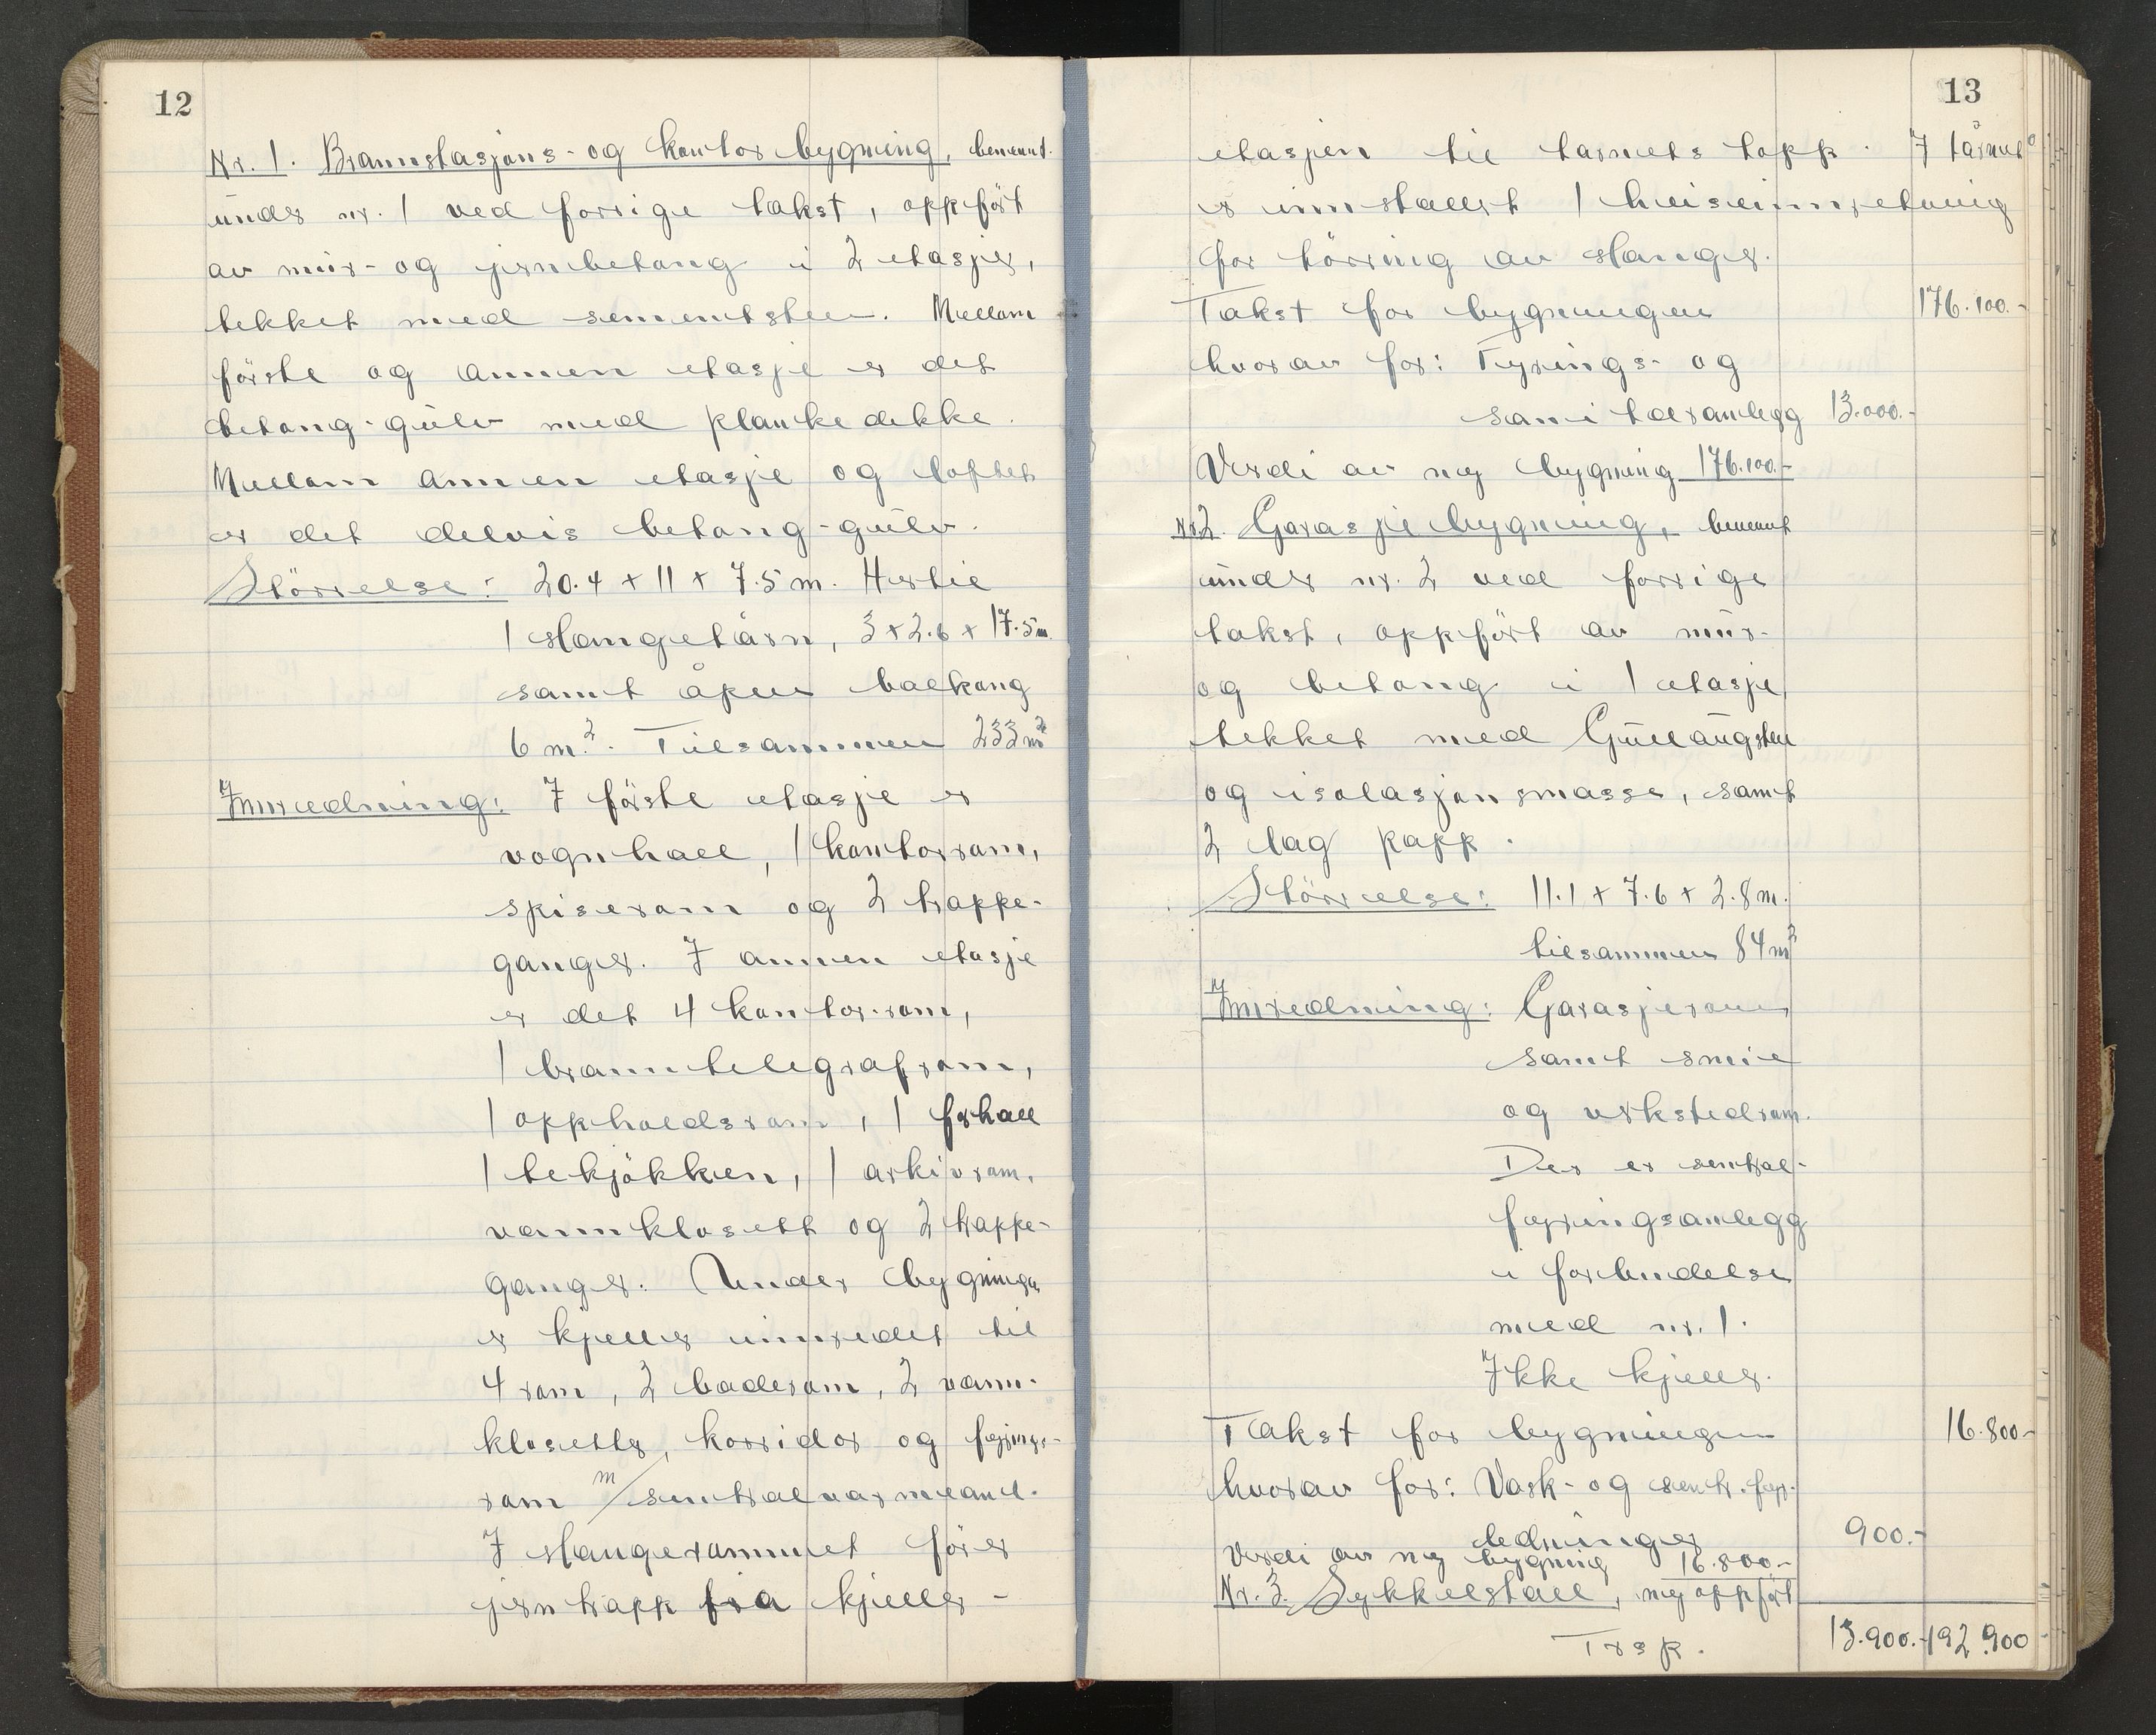 12
Nr. 1. Brannstasjons- og kontorbygning, benevnt
under nr. 1 ved forrige takst, oppført
av mur- og jernbetong i 2 etasjer,
tekket med sementsten. Mellom
første og annen etasje er det
betong-gulv med plankedekke.
Mellom annen etasje og loftet
er det delvis betong-gulv.
Størrelse: 20.4 + 11 + 7.5 m. Hertil
1 slangetårn, 3 + 2.6 + 17.5 m.
samt åpen balkong
6 m². Tilsammen 233 m²
Innredning: I første etasje er
vognhall, 1 kontorrom,
spiserom og 2 trappe-
ganger. I annen etasje
er det 4 kontor-rom,
1 branntelegrafrom,
1 oppholdsrom, 1 forhall
1 tekjøkken, 1 arkivrom,
vannklosett og 2 trappe-
ganger. Under bygningen
er kjeller innredet til
4 rom, 2 baderom, 2 vann-
klosetter, korridor og fyrings-
rom m/sentralvarmeanl.
I slangerommet fører
jerntrapp fra kjeller-
13
etasjen til tårnets topp. I tårnet
er innstallert 1 heiseinnretning
for tørring av slanger.
Takst for bygningen 176.100.-
hvorav for: Fyrings- og
sanitæranlegg 13.000.-
Verdi av ny bygning 176.100.-
Nr. 2. Garasjebygning, benevnt
under nr. 2 ved forrige
takst, oppført av mur-
og betong i 1 etasje,
tekket med Gullaugsten
og isolasjonsmasse, samt
2 lag papp.
Størrelse: 11.1 + 7.6 + 2.8 m.
tilsammen 84 m²
Innredning: Garasjerom
samt smie
og verkstedrom.
Der er sentral-
fyringsanlegg
i forbindelse
med nr. 1.
Ikke kjeller.
Takst for bygningen 16.800-
hvorav for: Vask- og sentr. fyr.
ledninger 900.-
Verdi av ny bygning 16.800.-
Nr. 3. Sykkelstall, ny oppført
Trsp. 13.900.- 192.900